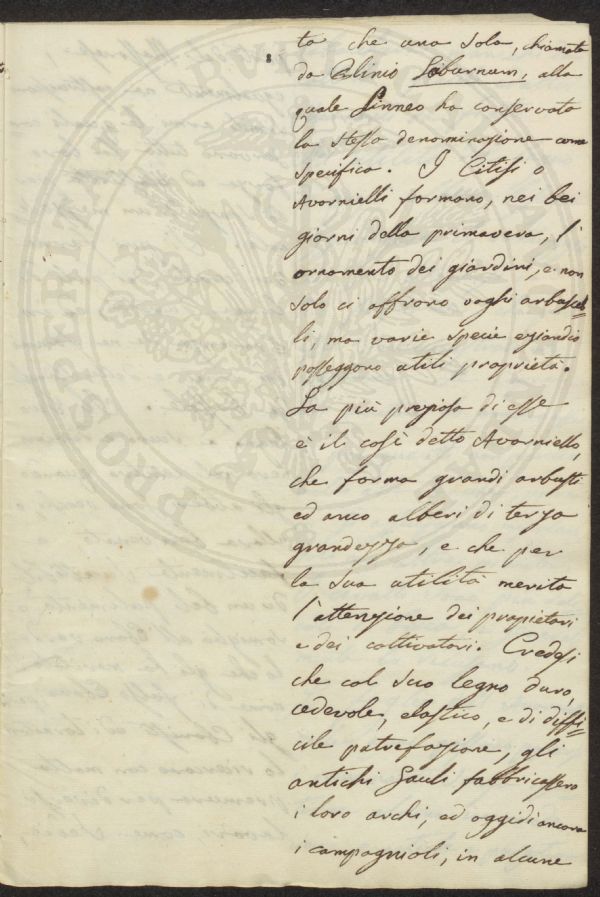 ta che una sola, chiamata
da Plinio Laburnum, alla
quale Linneo ha conservata
la stessa denominazione come
specifica. I Citisi o
Avornielli formano, nei bei
giorni della primavera, l'
ornamento dei giardini, e non
solo ci offrono vaghi arbuscel=
li, ma varie specie eziandio
posseggono utili proprietà.
La più preziosa di esse
è il così detto Avorniello,
che forma grandi arbusti
ed anco alberi di terza
grandezza, e che per
la sua utilità merita
l'attenzione dei propietari
e dei coltivatori. Credesi
che col suo legno duro,
cedevole, elastico, e di diffi=
cile putrefazione, gli
antichi Gauli fabbricassero
i loro archi, ed oggidì ancora
i campagnioli, in alcune